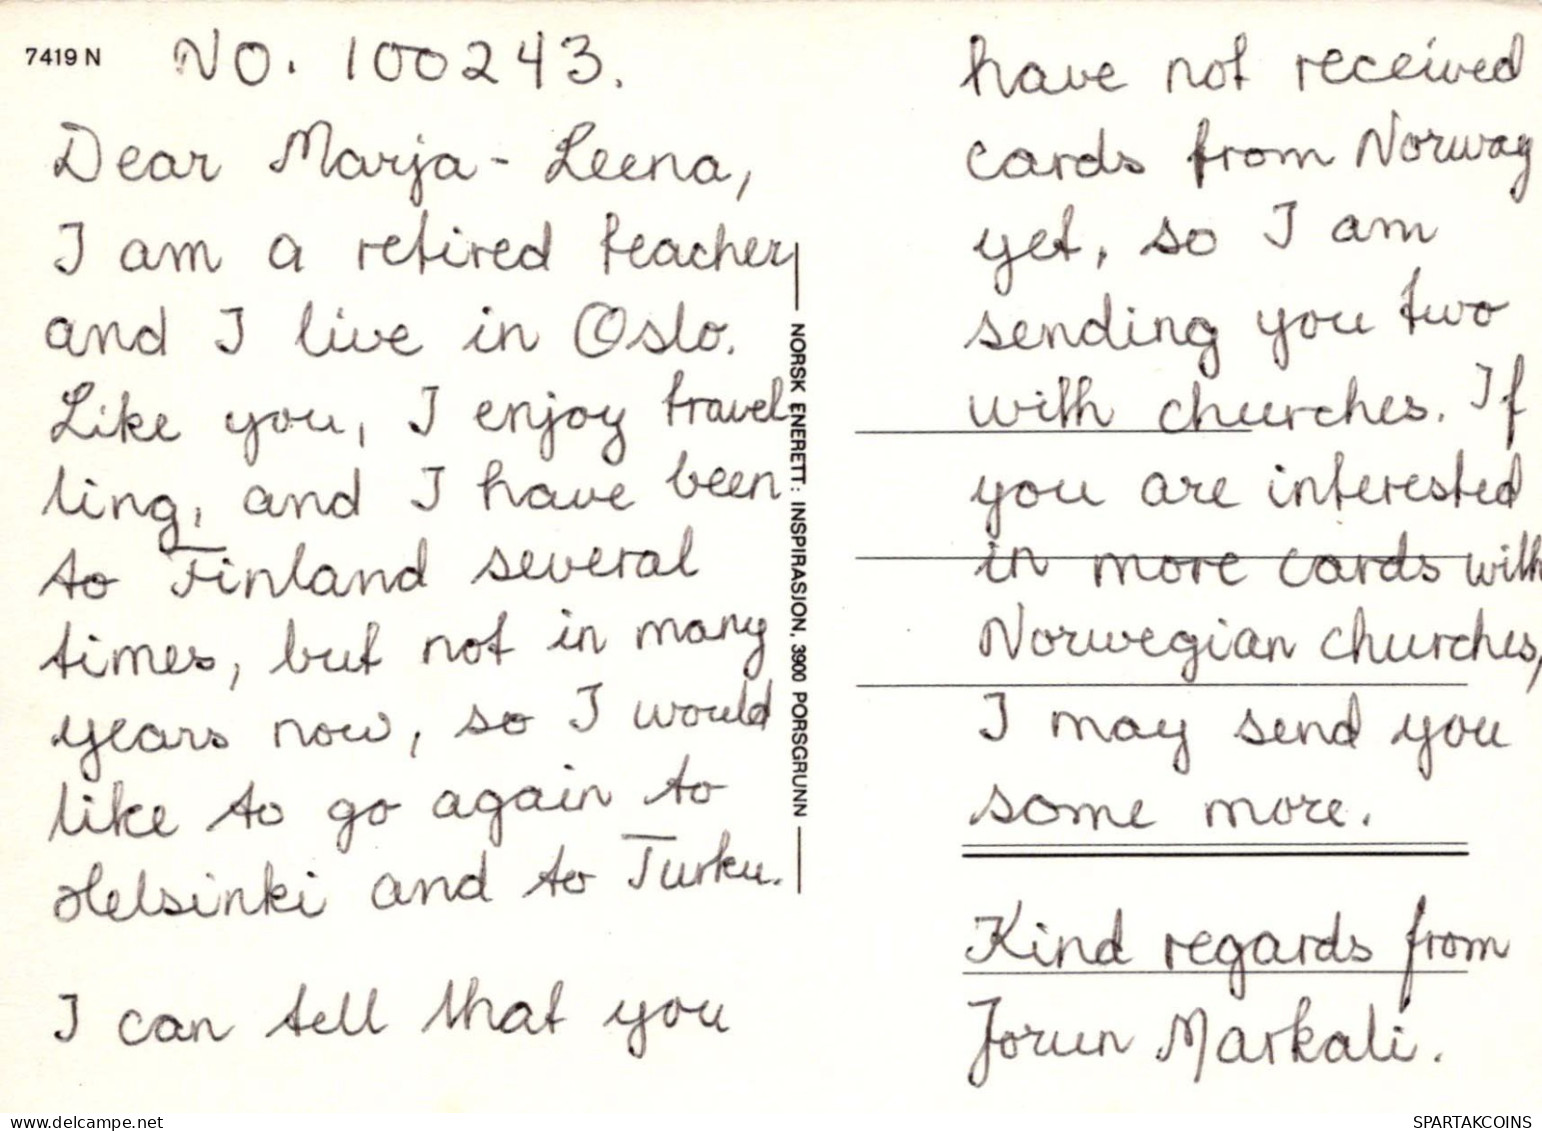 7419 N
NO. 100243.
Dear Marja-Leena,
I am a retired teacher
and I live in Oslo.
Like you, I enjoy travel
ling, and I have been
to Finland several
times, but not in many
years now, so I would
like to go again to
Helsinki and to Turku.
I can tell that you
NORSK ENERETT: INSPIRASJON, 3900 PORSGRUNN
have not received
cards from Norway
yet, so I am
sending you two
with churches. If
you are interested
in more cards with
Norwegian churches,
I may send you
some more.
Kind regards from
Jorun Markali.
delcampe.net
SPARTAKCOINS